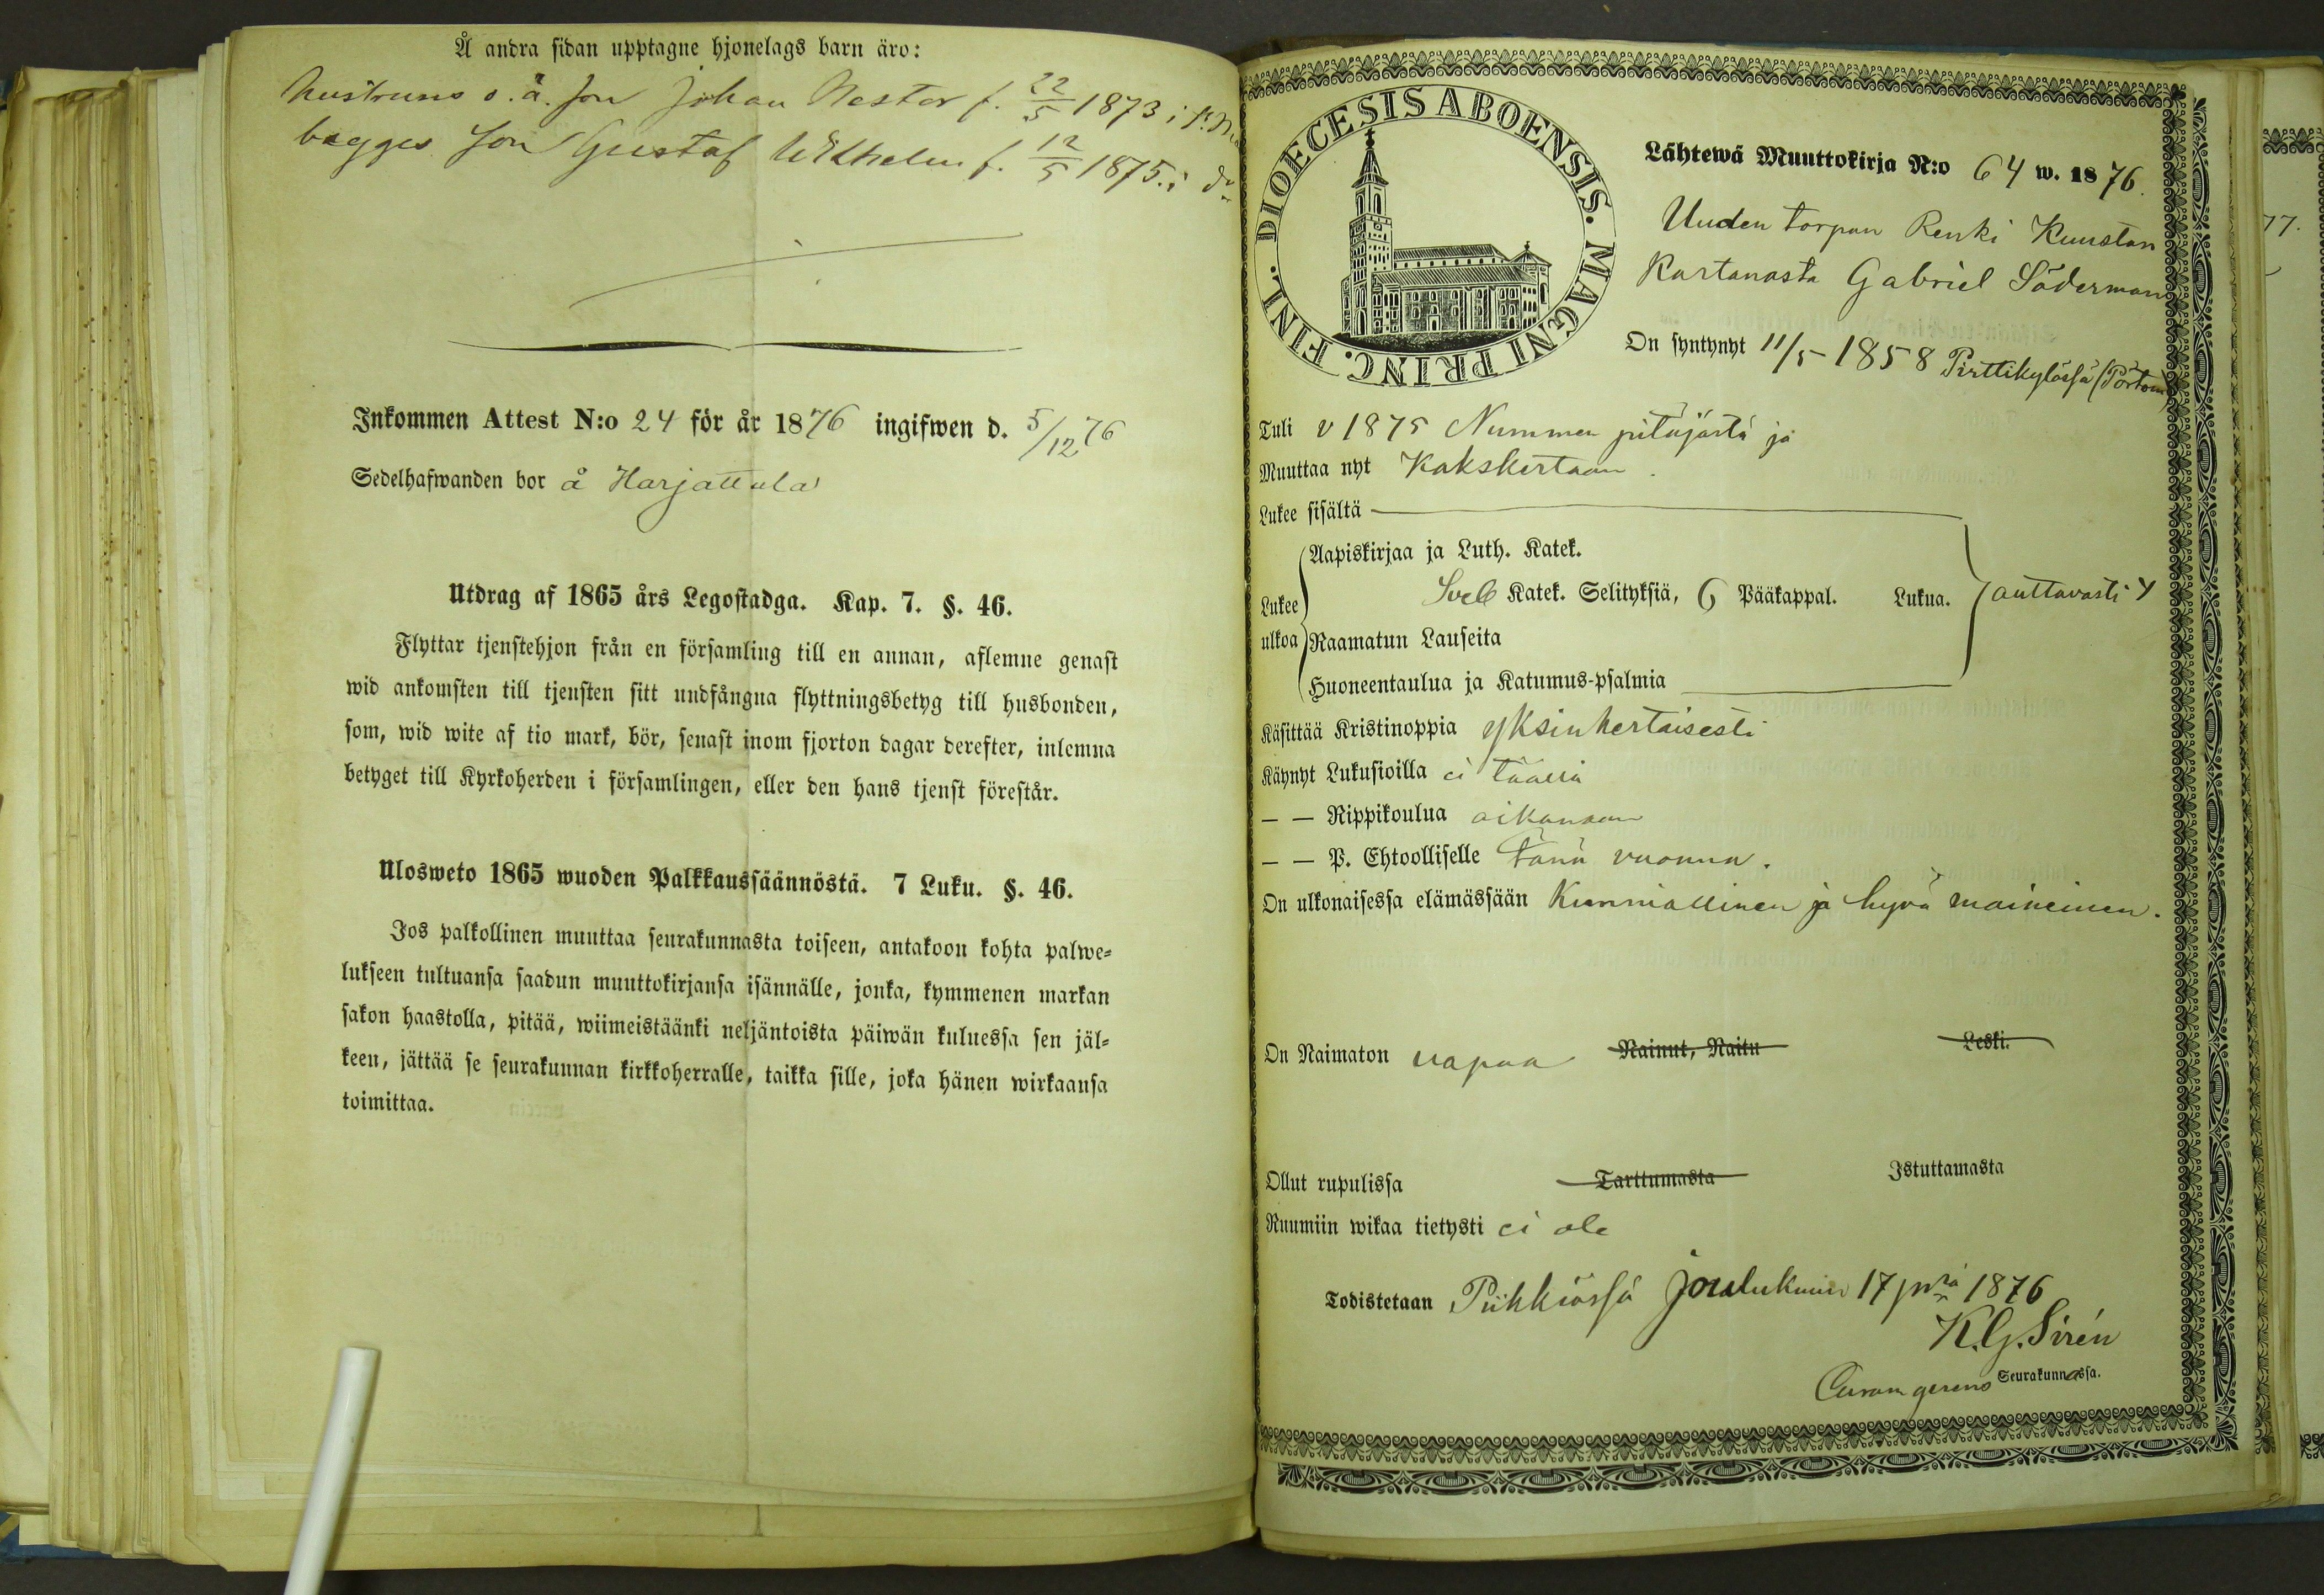 Å andra sidan upptagne hjonelags barn äro:
hustruns o. ä. son Johan Nestor f. 22/5 1873 i
bägges son Gustaf Wilhelm f. 12/5 1875. i do
Inkommen Attest N:o 24 för år 1876 ingifwen d. 5/12 76
Sedelhafwanden bor å Harjattula
Utdrag af 1865 års Legostadga. Kap. 7. §. 46.
Flyttar tjenstehjon från en församling till en annan, aflemne genast
wid ankomsten till tjensten sitt undfångna flyttningsbetyg till husbonden,
som, wid wite af tio mark, bör, senast inom fjorton dagar derefter, inlemna
betyget till Kyrkoherden i församlingen, eller den hans tjenst förestår.
Ulosweto 1865 wuoden Palkkaussäännöstä. 7 Luku. §. 46.
Jos palkollinen muuttaa seurakunnasta toiseen, antakoon kohta palwe=
lukseen tultuansa saadun muuttokirjansa isännälle, jonka, kymmenen markan
sakon haastolla, pitää, wiimeistäänki neljäntoista päiwän kuluessa sen jäl=
keen, jättää se seurakunnan kirkkoherralle, taikka sille, joka hänen wirkaansa
toimittaa.
DIOECESIS ABOENSIS. MAGNI PRINC. FINL.
Lähtewä Muuttokirja N:o 64 w. 1876.
Uuden torpan Renki Kuustan
Kartanosta Gabriel Söderman
On syntynyt 11/5 1858 Pirttikylässä (Pörtom)
Tuli v 1875 Nummen pitäjästä ja
Muuttaa nyt Kakskertaan.
Lukee sisältä
Lukee ulkoa
Aapiskirjaa ja Luth. Katek.
Sveb Katek. Selityksiä, 6 Pääkappal. Lukua. auttavasti
Raamatun Lauseita
Huoneentaulua ja Katumus-psalmia
Käsittää Kristinoppia yksinkertaisesti
Käynyt Lukusioilla ei täällä
— — Rippikoulua aikanaan
— — P. Ehtoolliselle tänä vuonna.
On ulkonaisessa elämässään kunniallinen ja hyvä maineinen.
On Naimaton vapaa Nainut, Naitu Leski.
Ollut rupulissa Tarttumasta Istuttamasta
Ruumiin wikaa tietysti ei ole
Todistetaan Piikkiössä Joulukuun 17 pnä 1876
K. G. Sirén
Curam gerens Seurakunnassa.
77.